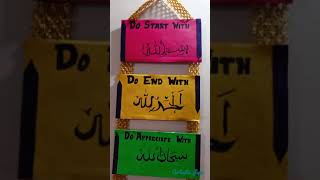 Do Start With
بسم الله
Do End With
الحمد لله
Do Appreciate With
سبحان الله